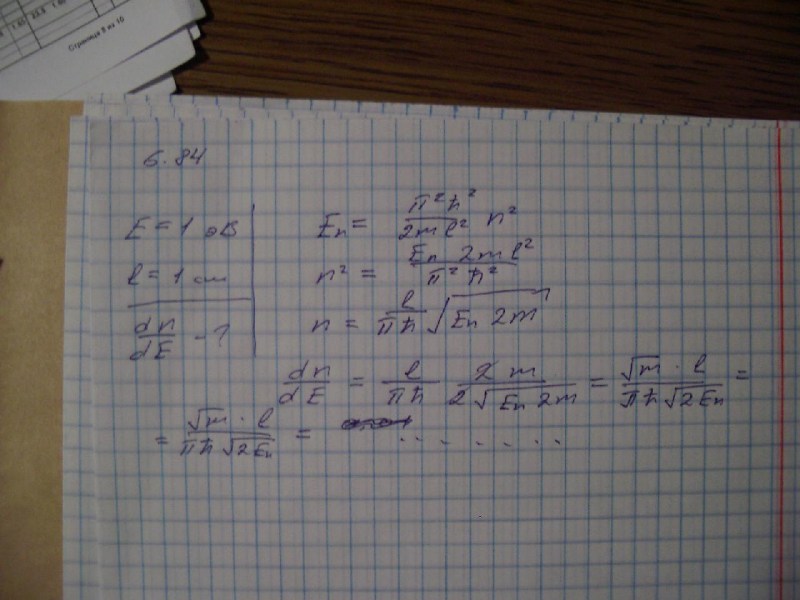 Страница 9 из 10
6.84
E = 1 эВ
l = 1 см
dn/dE - ?
Eₙ = π²ħ²/2ml² n²
n² = Eₙ 2ml²/π²ħ²
n = l/πħ √(Eₙ 2m)
dn/dE = l/πħ 2m/2√(Eₙ 2m) = √m · l/πħ√(2Eₙ) =
= √m · l/πħ√(2Eₙ) = . . . . . . . .